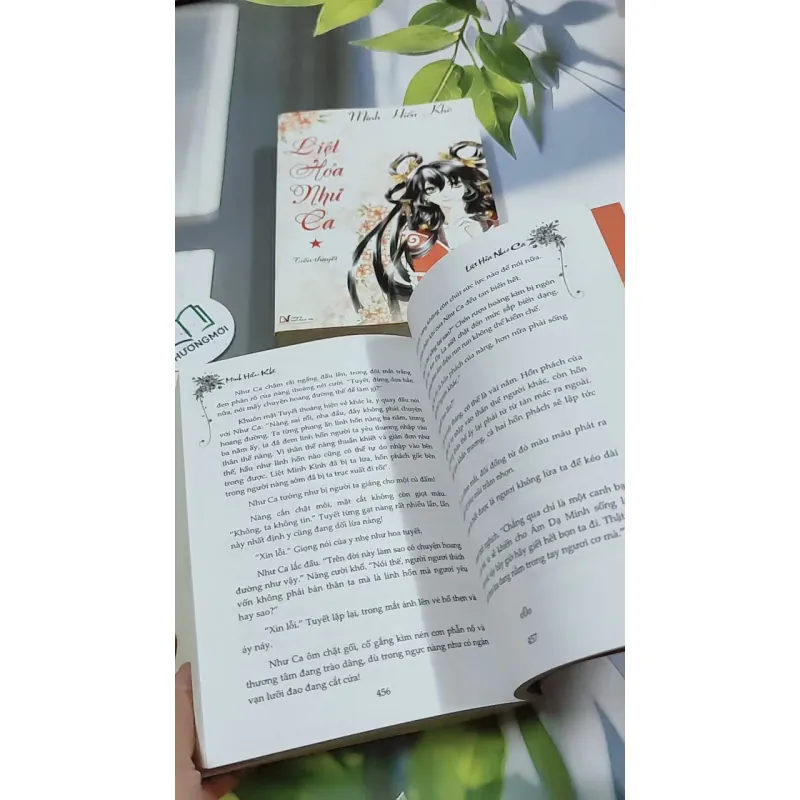 Minh Hiểu Khê
Liệt
Hỏa
Như
Ca
Tiểu thuyết
THƯƠNGMỚI
Minh Hiểu Khê
Như Ca chậm rãi ngẩng đầu lên, trong đôi mắt trắng
đen phân rõ của nàng thoáng nét cười. "Tuyết, đừng dọa bản
nữa, nói mấy chuyện hoang đường thế để làm gì?"
Khuôn mặt Tuyết thoáng hiện vẻ khác lạ, y quay đầu nói
với Như Ca: "Nàng sai rồi, nha đầu, đây không phải chuyện
hoang đường. Ta từng phong ấn linh hồn nàng ba năm, trong
ba năm ấy, ta đã đem linh hồn người ta yêu thương nhập vào
thân thể nàng. Vì thân thể nàng thuần khiết và giản đơn như
thế, hầu như linh hồn nào cũng có thể tự do nhập vào bên
trong được. Liệt Minh Kính đã bị ta lừa, hồn phách gốc bên
trong người nàng sớm đã bị ta trục xuất đi rồi".
Như Ca tưởng như bị người ta giáng cho một cú đấm!
Nàng cắn chặt môi, mặt cắt không còn giọt máu.
"Không, ta không tin." Tuyết từng gạt nàng rất nhiều lần, lần
này nhất định y cũng đang dối lừa nàng!
"Xin lỗi." Giọng nói của y nhẹ như hoa tuyết.
Như Ca lắc đầu. "Trên đời này làm sao có chuyện hoang
đường như vậy." Nàng cười khổ. "Nói thế, người ngươi thích
vốn không phải bản thân ta mà là linh hồn mà ngươi yêu
hay sao?"
"Xin lỗi." Tuyết lặp lại, trong mắt ánh lên vẻ hổ thẹn và
áy náy.
Như Ca ôm chặt gối, cố gắng kìm nén cơn phẫn nộ và
thương tâm đang trào dâng, dù trong ngực nàng như có ngàn
vạn lưỡi dao đang cắt cứa!
456
Liệt Hỏa Như Ca
không còn chút sức lực nào để nói nữa.
của Như Ca đều tan biến hết.
Chân cườc hoàng kim bị ngón
siết chặt đến mức sắp biến dạng.
run run không thể kiềm chế.
hồn phách của nàng, hơn nữa phải sống
khác."
có thể là vài năm. Hồn phách của
nhập vào thân thể người khác, còn hồn
thể ấy lại phải từ từ tản mác ra ngoài.
cả hai hồn phách sẽ lập tức
đôi đồng tử đỏ màu máu phát ra
trầm nhọn.
được là ngươi không lừa ta để kéo dài
"Chẳng qua chỉ là một canh bạc
khiến cho Ám Dạ Minh sống lại
giờ hãy giết hết bọn ta đi. Thật
đang nằm trong tay ngươi cơ mà."
457